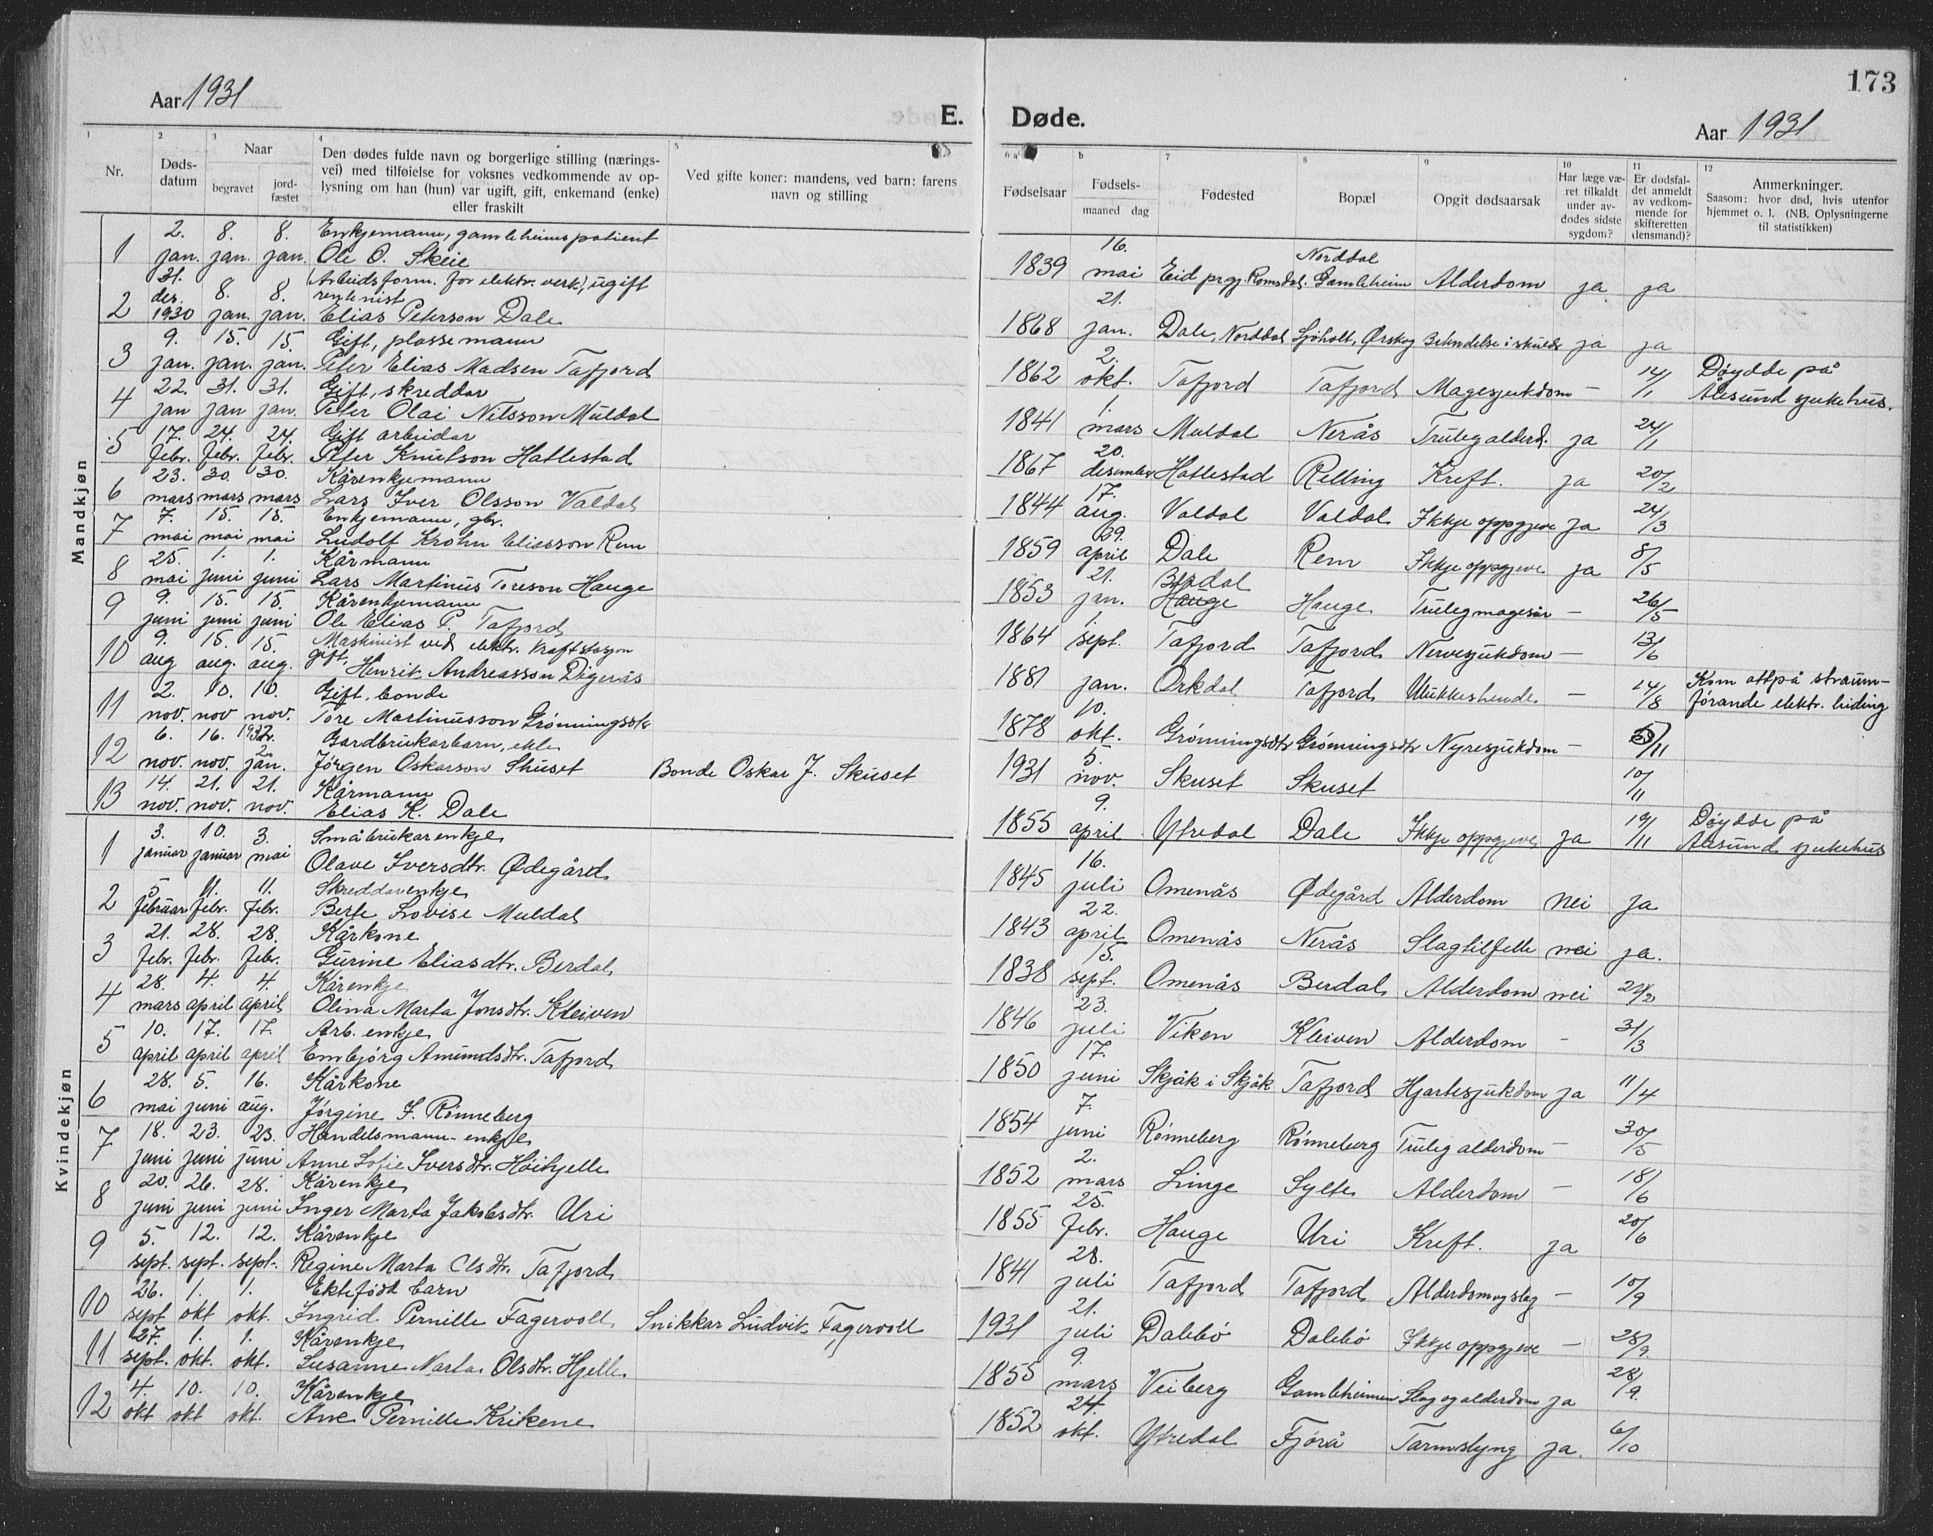 173
Aar 1931
E. Døde.
Aar 1931
1 2 3 4 5 6 a b 7 8 9 10 11 12
Nr.
Døds-
datum
Naar
begravet
jord-
fæstet
Den dødes fulde navn og borgerlige stilling (nærings-
vei) med tilføielse for voksnes vedkommende av op-
lysning om han (hun) var ugift, gift, enkemand (enke)
eller fraskilt
Ved gifte koner: mandens, ved barn: farens
navn og stilling
Fødselsaar
Fødsels-
maaned dag
Fødested
Bopæl
Opgit dødsaarsak
Har læge væ-
ret tilkaldt
under av-
dødes sidste
sygdom?
Er dødsfal-
det anmeldt
av vedkom-
mende for
skifteretten
(lensmand)?
Anmerkninger.
Saasom: hvor død, hvis utenfor
hjemmet o. l. (NB. Oplysningerne
til statistikken)
Mandkjøn
2. 8. 8. Enkjemann, gamleheimspatient 16. Norddal
1 jan. jan. jan. Ole O. Skeie 1839 mai Eid prgj. Romsdal. Gamleheim Alderdom ja ja
31. Arbeidsform. for elektr. verk, ugift
des. 8. 8. rentenist 21.
2 1930 jan. jan. Elias Peterson Dale 1868 jan. Dale, Norddal Sjøholt, Ørskog ja ja
9. 15. 15. Gift, plassemann 2. 14/1 Døydde på
3 jan. jan. jan. Peter Elias Madsen Tafjord 1862 okt. Tafjord Tafjord Magesjukdom — Ålesund sjukehus.
22. 31. 31. Gift, skreddar 1.
4 jan jan jan. Peter Olai Nilsson Muldal 1841 mars Muldal Nerås Truleg alderd. ja 24/1
17. 24. 24. Gift arbeidar 20.
5 febr. febr. febr. Peter Knutson Hattestad 1867 desember Hattestad Relling Kreft. ja 20/2
23. 30. 30. Kårenkjemann 17.
6 mars mars mars Lars Iver Olsson Valdal 1844 aug. Valdal Valdal Ikkje oppgjeve ja 24/3
7. 15. 15. Enkjemann, gbr. 29.
7 mai mai mai Ludolf Krohn Eliasson Rem 1859 april Dale Rem Ikkje oppgjeve ja 8/5
25. 1. 1. Kårmann 21. Berdal
8 mai juni juni Lars Martinus Toreson Hauge 1853 jan. Hauge Hauge Truleg magesår — 26/5
9. 15. 15. Kårenkjemann 1.
9 juni juni juni Ole Elias P. Tafjord 1864 sept. Tafjord Tafjord Nervesjukdom — 13/6
9. 15. 15. Maskinist ved elektr. kraftstasjon Kom attpå straum-
10 aug aug. aug. gift, Henrik Andreasson Digerås 1881 jan. Orkdal Tafjord Ulukkeshende — 14/8 førande elektr. leiding
2. 10. 10. Gift, bonde 10.
11 nov. nov nov. Tore Martinusson Grønningsetr 1878 okt. Grønningsetr Grønningsetr Nyresjukdom —
6. 16. 1932 2. Gardbrukarbarn, ekte 5.
12 nov. nov. jan. Jørgen Oskarson Skuset Bonde Oskar J. Skuset 1931 nov. Skuset Skuset 10/11
14. 21. 21. Kårmann 9. Døydde på
13 nov. nov. nov. Elias K. Dale 1855 april Ytredal Dale Ikkje oppgjeve ja 19/11 Ålesund sjukehus
Kvindekjøn
3. 10. 3. Småbrukarenkje 16.
1 januar januar mai Olave Iversdtr. Ødegård 1845 juli Omenås Ødegård Alderdom nei ja
5 11. 11. Skreddarenkje 22.
2 februar febr. febr. Berte Lovise Muldal 1843 april Omenås Nerås Slagtilfelle nei ja.
21. 28. 28. Kårkone 15.
3 febr. febr. febr. Gurine Eliasdtr. Berdal 1838 sept. Omenås Berdal Alderdom nei
28. 4. 4. Kårenkje 23.
4 mars april april Olina Marta Jonsdtr. Kleiven 1846 juli Viken Kleiven Alderdom - 31/3
10. 17. 17. Arb. enkje 17.
5 april april april Embjørg Amundsdtr. Tafjord 1850 juni Skjåk i Skjåk Tafjord Hjartesjukdom ja 11/4
28. 5. 16. Kårkone 7.
6 mai juni aug. Jørgine I. Rønneberg 1854 juni Rønneberg Rønneberg Truleg alderdom — 30/5
18. 23. 23. Handelsmann-enkje 2.
7 juni juni juni Anne Sofie Iversdtr. Høihjelle 1852 mars Linge Sylte Alderdom — 18/6
20. 26. 28. Kårenkje 25.
8 juni juni juni Inger Marta Jakobsdtr. Uri 1855 febr. Hauge Uri Kreft. ja 20/6
5. 12. 12. Kårenkje 28.
9 sept. sept. sept. Regine Marta Olsdtr. Tafjord 1841 juli Tafjord Tafjord Alderdom og slag — 10/9
26. 1. 1. Ektefødt barn 21.
10 sept okt okt. Ingrid Pernille Fagervoll Snikkar Ludvik Fagervoll 1931 juli Dalebø Dalebø Ikkje oppgjeve — 28/9
27. 1. 1. Kårenkje 9.
11 sept. okt. okt. Susanne Marta Olsdtr. Hjelle 1855 mars Veiberg Gamleheimen Slag og alderdom ja 28/9
4. 10. 10. Kårenkje 24.
12 okt okt okt. Ane Pernille Krikene 1852 okt. Ytredal Fjørå Tarmslyng ja. 6/10